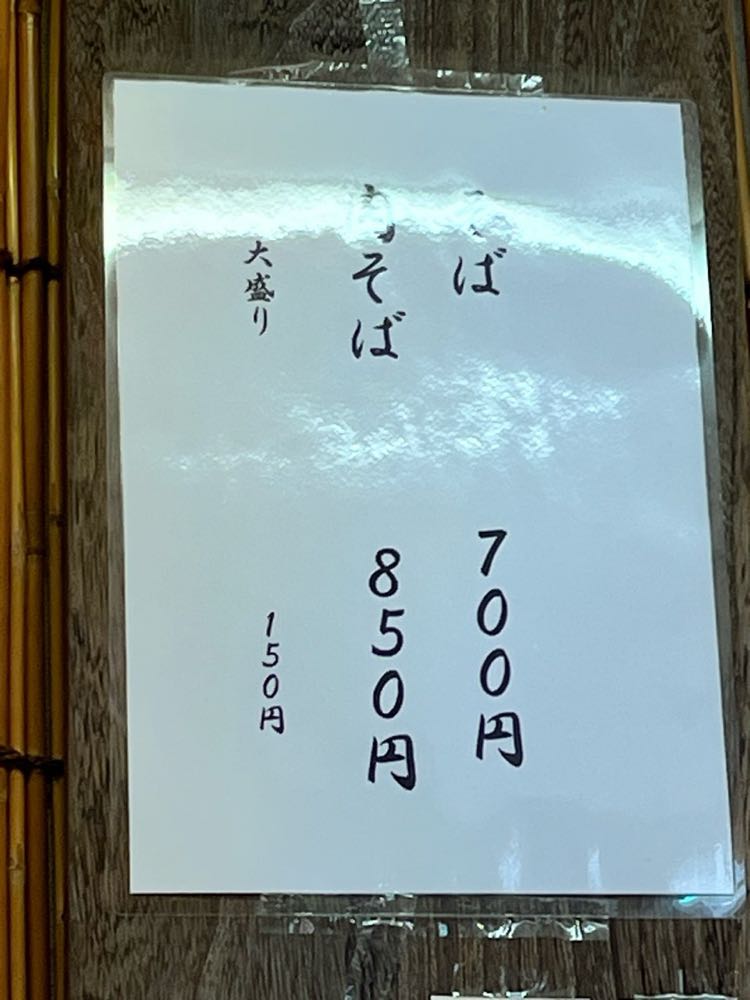 そば 700円
肉そば 850円
大盛り 150円